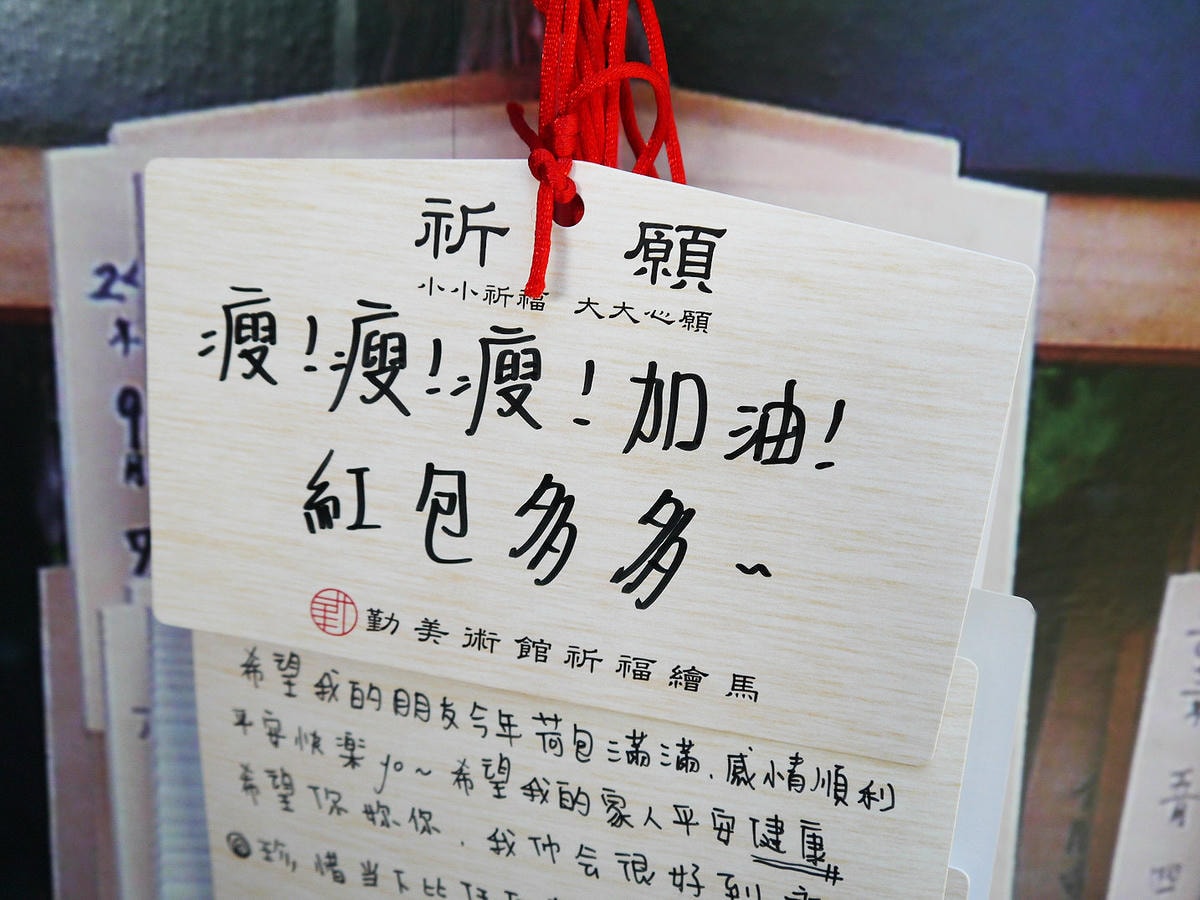 祈願
小小祈福 大大心願
瘦!瘦!瘦!加油!
紅包多多~
勤美術館祈福繪馬
希望我的朋友今年荷包滿滿、感情順利
平安快樂yo~希望我的家人平安健康
希望你妳你、我们会很好到
珍惜当下比
9
月
五
月
四